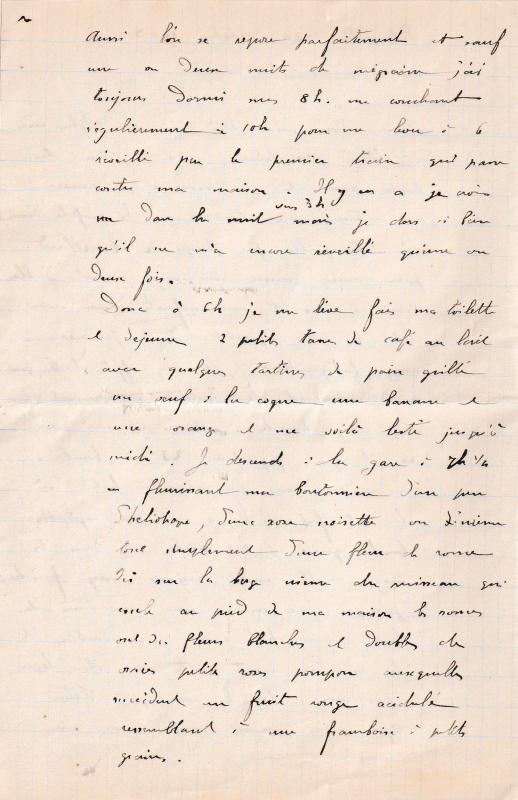 Aussi l'on se repose parfaitement et sauf
une ou deux nuits de migraine j'ai
toujours dormi mes 8h. me couchant
régulièrement à 10h pour me lever à 6
réveillé par le premier train qui passe
contre ma maison. Il y en a je crois
un dans la nuit vers 3h mais je dors si bien
qu'il ne m'a encore réveillé qu'une ou
deux fois.
Donc à 6h je me lève fais ma toilette
et déjeune 2 petites tasses de café au lait
avec quelques tartines de pain grillé
un oeuf à la coque une banane et
une orange et me voilà lesté jusqu'à
midi. Je descends à la gare à 7h 1/4
en fleurissant ma boutonnière d'un peu
d'héliotrope, d'une rose noisette ou d'
tout simplement d'une fleur de ronce
Ici sur la berge même du ruisseau qui
coule au pied de ma maison les ronces
ont des fleurs blanches et doubles de
vraies petites roses pompon auxquelles
succèdent un fruit rouge acidulé
ressemblant à une framboise à petits
grains.